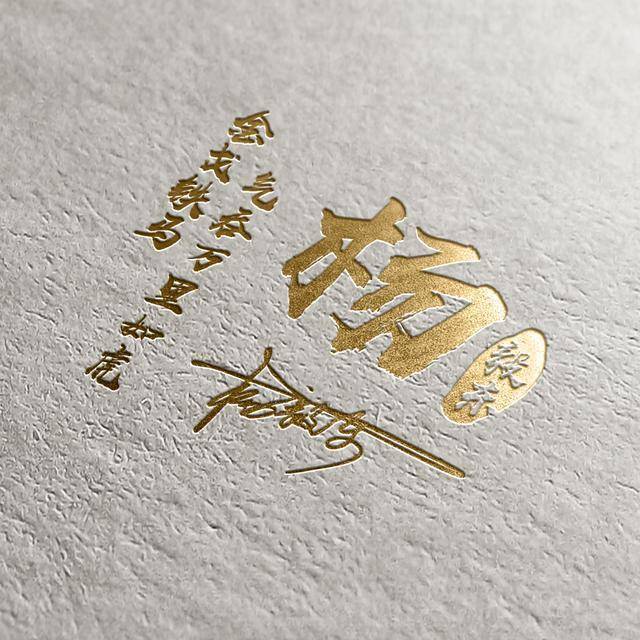 金戈铁马
气吞万里如虎
杨